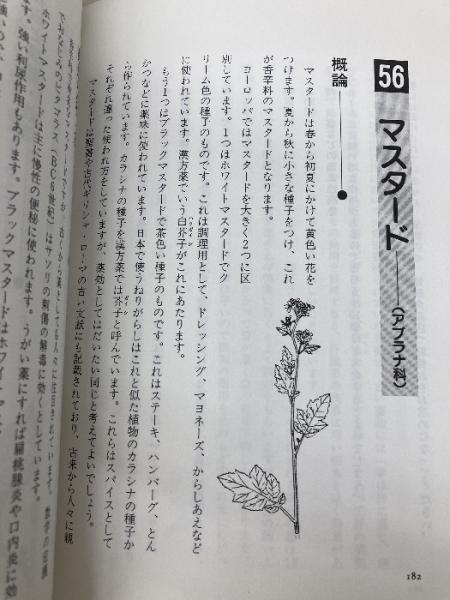 56 マスタード——(アブラナ科)
概論
マスタードは春から初夏にかけて黄色い花を
つけます。夏から秋に小さな種子をつけ、これ
が香辛料のマスタードとなります。
ヨーロッパではマスタードを大きく2つに区
別しています。1つはホワイトマスタードでク
リーム色の種子のものです。これは調理用として、ドレッシング、マヨネーズ、からしあえなど
に使われています。漢方薬でいう白芥子がこれにあたります。
もう1つはブラックマスタードで茶色い種子のものです。これはステーキ、ハンバーグ、とん
かつなどに薬味に使われています。日本で使うねりがらしはこれと似た植物のカラシナの種子か
ら作られています。カラシナの種子を漢方薬では芥子と呼んでいます。これらはスパイスとして
それぞれ違った使われ方をしていますが、薬効としてはだいたい同じと考えてよいでしょう。
マスタードは聖書や古代ギリシャ・ローマの古い文献にも記載されており、古来から人々に親
古くから薬として人々に注目されています。数学の定義
でおなじみのピタゴラス(BC6世紀)はサソリの刺傷の解毒に効くとしています。
ホワイトマスタードは主に慢性の便秘に使われます。
強い利尿作用もあります。ブラックマスタードはホワイトマス
す。うがい薬にすれば扁桃腺炎や口内炎に効
182